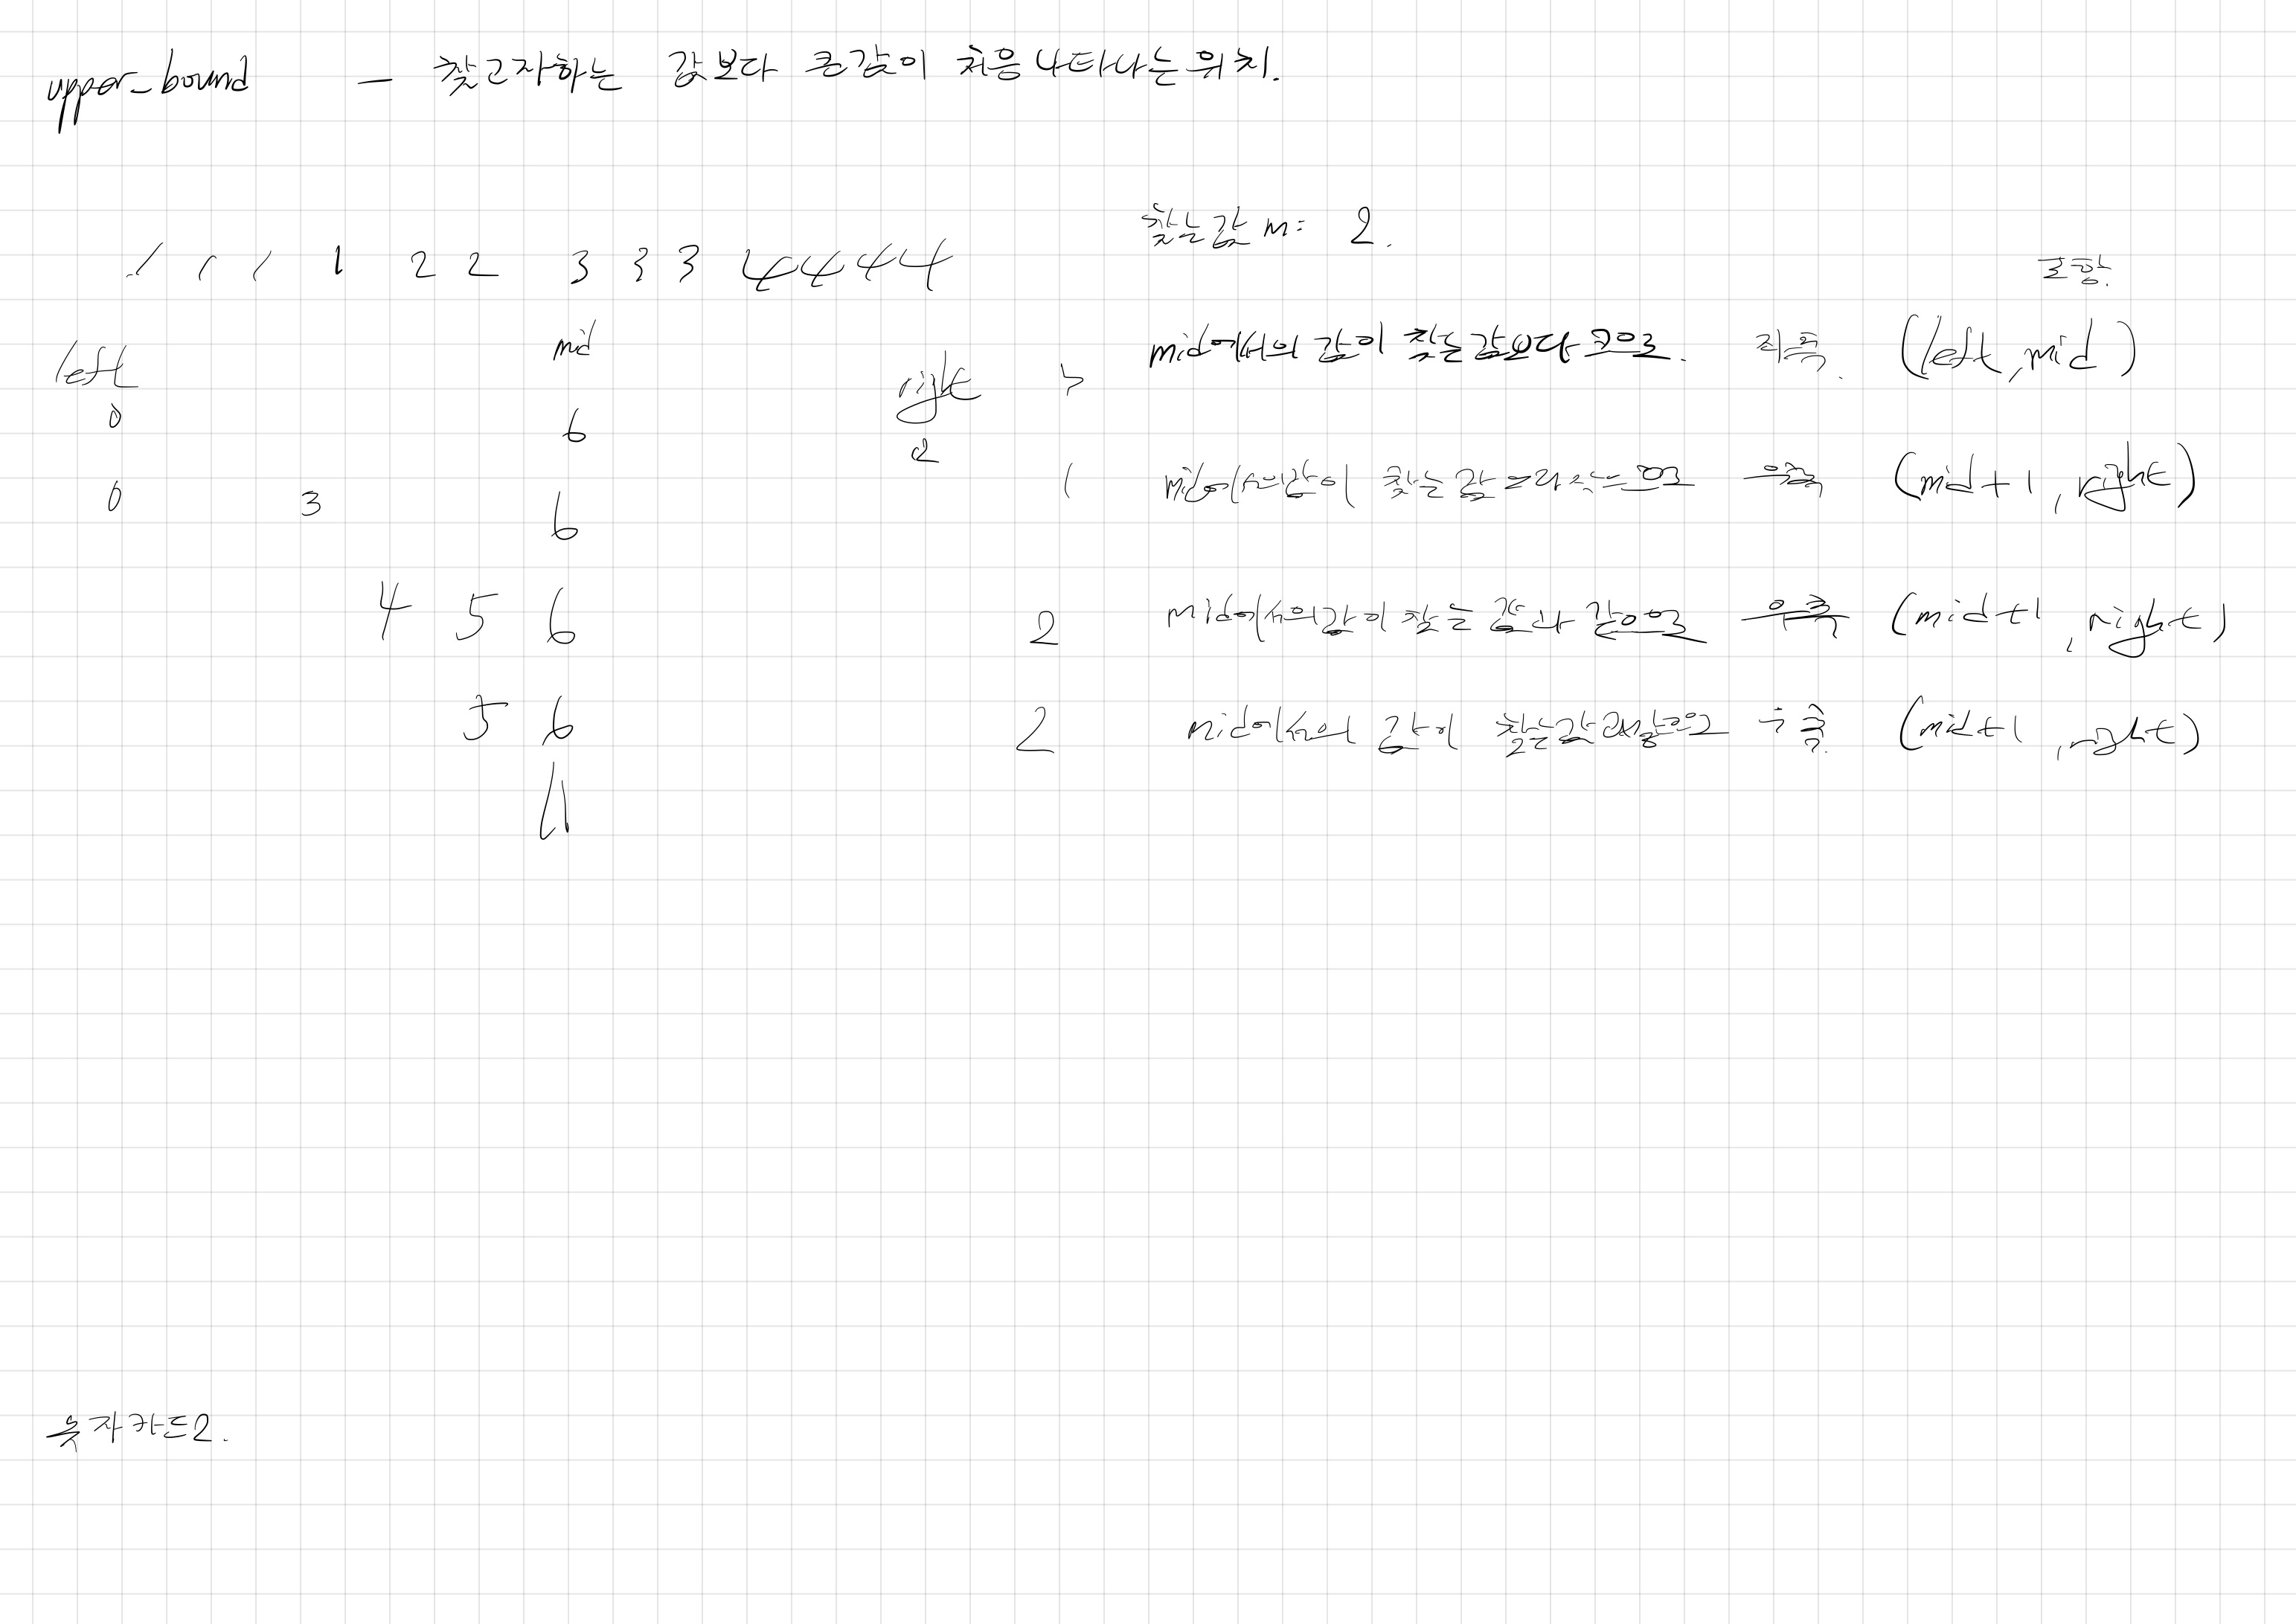 upper_bound — 찾고자하는 값보다 큰값이 처음 나타나는 위치.
찾는값 m= 2.
1 1 1 1 2 2 3 3 3 4 4 4 4
포함.
left mid right mid에서의 값이 찾는 값보다 크므로. 좌측. (left, mid)
0 6
0 3 6 1 mid에서의 값이 찾는 값 작으므로 우측 (mid+1, right)
4 5 6 2 mid에서의 값이 찾는 값과 같으므로 우측 (mid+1, right)
5 6 2 mid에서의 값이 찾는값과 같으므로 우측. (mid+1, right)
숫자카드2.